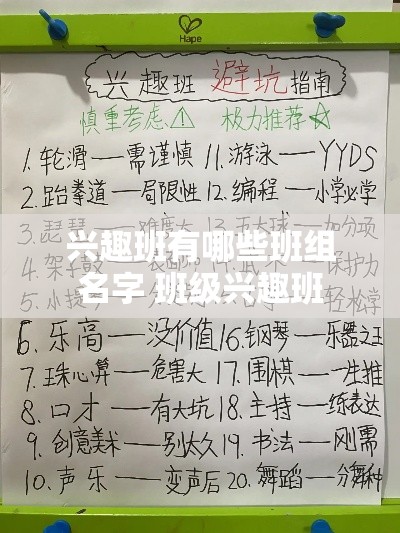 Hape
兴趣班 避坑 指南
慎重考虑⚠ 极力推荐☆
1. 轮滑——需谨慎 11. 游泳——YYDS
2. 跆拳道——局限性 12. 编程——小学必学
3. 琵琶——难度大 加分项
4. 架子鼓 保护力
5. 小提 轻松学
兴趣班有哪些班组
名字 班级兴趣班
6. 乐高——没价值 16. 钢琴——乐器之王
7. 珠心算——危害大 17. 围棋——一生推
8. 口才——有大坑 18. 主持——练表达
9. 创意美术——别太久 19. 书法——刚需
10. 声乐——变声后 20. 舞蹈——分舞种